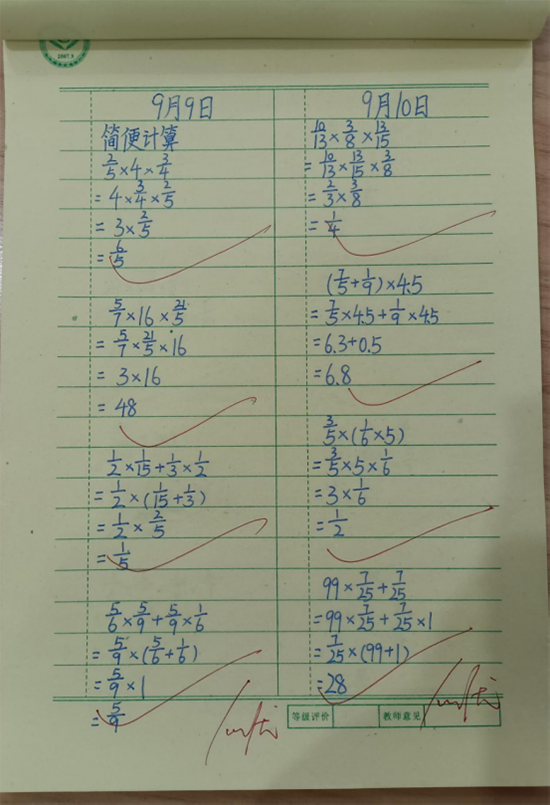 1987.9
9月9日
简便计算
2/5×4×3/4
=4×3/4×2/5
=3×2/5
=6/5
5/7×16×21/5
=5/7×21/5×16
=3×16
=48
1/2×1/15+1/3×1/2
=1/2×(1/15+1/3)
=1/2×2/5
=1/5
5/6×5/9+5/9×1/6
=5/9×(5/6+1/6)
=5/9×1
=5/9
9月10日
10/13×3/8×13/15
=10/13×13/15×3/8
=2/3×3/8
=1/4
(7/5+1/9)×4.5
=7/5×4.5+1/9×4.5
=6.3+0.5
=6.8
3/5×(1/6×5)
=3/5×5×1/6
=3×1/6
=1/2
99×7/25+7/25
=99×7/25+7/25×1
=7/25×(99+1)
=28
等级评价
教师意见